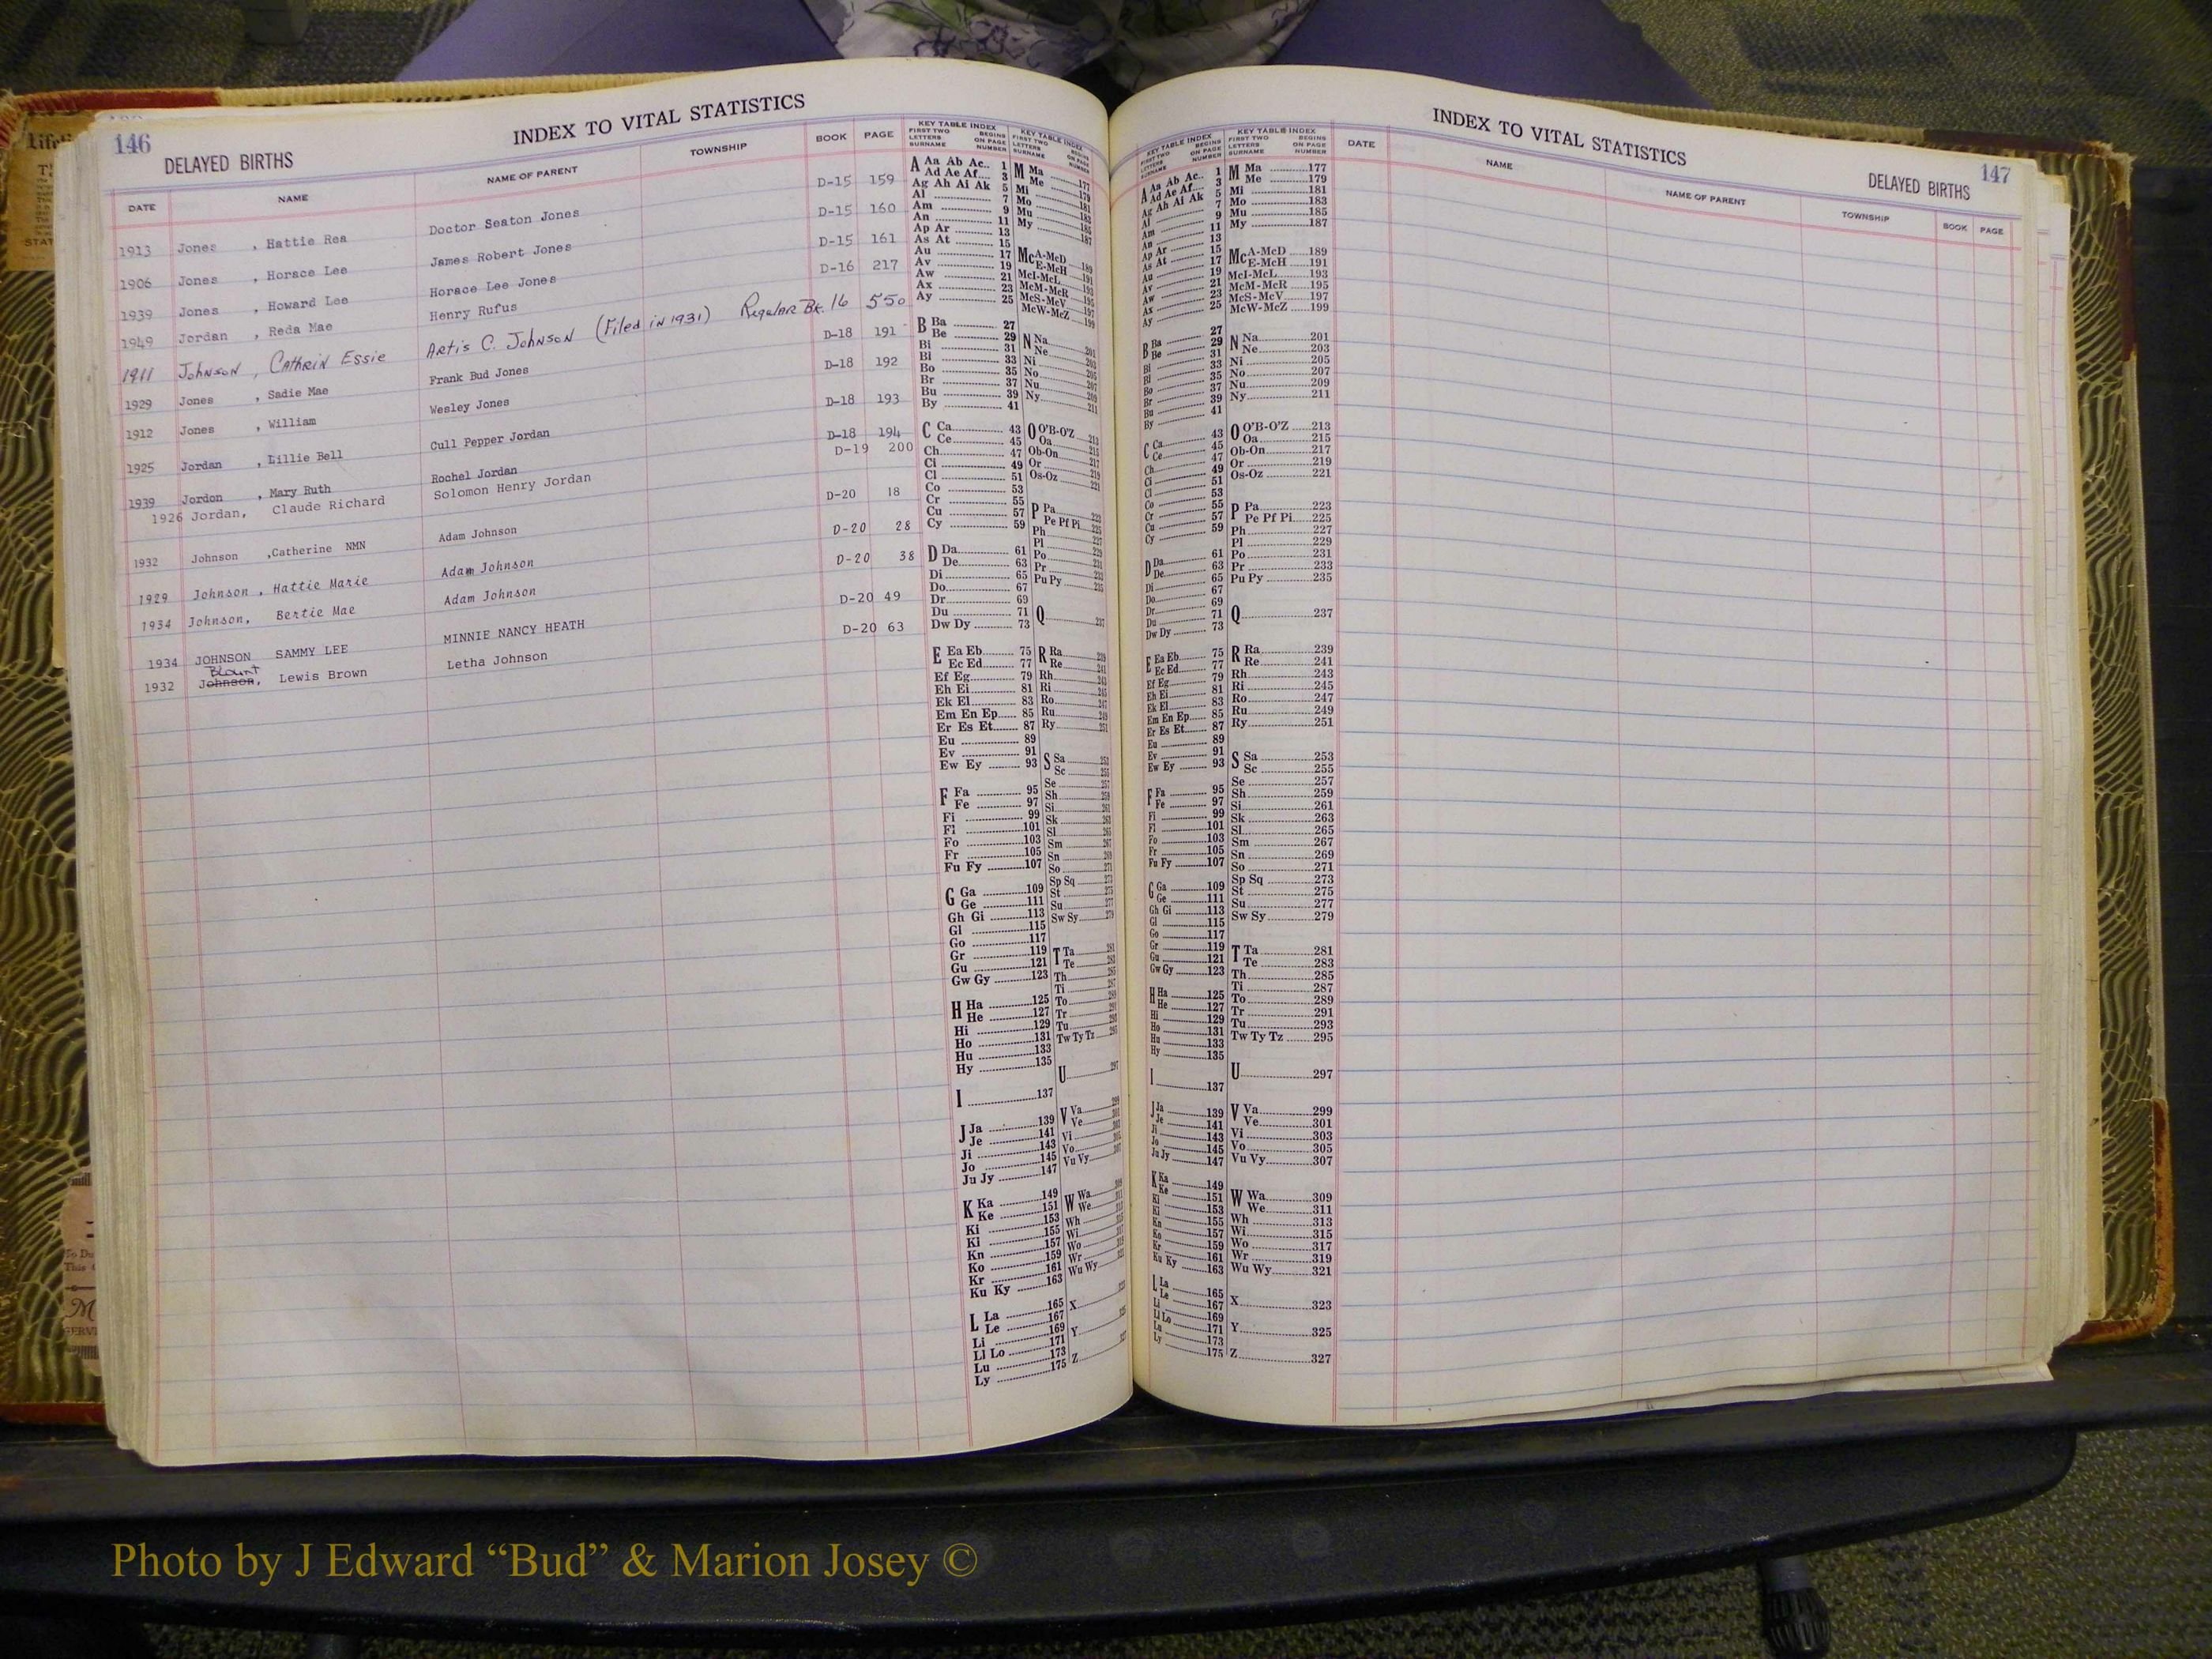 146
INDEX TO VITAL STATISTICS
DELAYED BIRTHS
DATE NAME NAME OF PARENT TOWNSHIP BOOK PAGE
1913 Jones , Hattie Rea Doctor Seaton Jones D-15 159
1906 Jones , Horace Lee James Robert Jones D-15 160
1939 Jones , Howard Lee Horace Lee Jones D-15 161
1949 Jordan , Reda Mae Henry Rufus D-16 217
1911 Johnson , Cathrin Essie Artis C. Johnson (Filed in 1931) Regular Bk. 16 550
1929 Jones , Sadie Mae Frank Bud Jones D-18 191
1912 Jones , William Wesley Jones D-18 192
1925 Jordan , Lillie Bell Cull Pepper Jordan D-18 193
1939 Jordon , Mary Ruth Rochel Jordan D-18 194
1926 Jordan, Claude Richard Solomon Henry Jordan D-19 200
1932 Johnson ,Catherine NMN Adam Johnson D-20 18
1929 Johnson , Hattie Marie Adam Johnson D-20 28
1934 Johnson, Bertie Mae Adam Johnson D-20 38
1934 JOHNSON SAMMY LEE MINNIE NANCY HEATH D-20 49
Blount
1932 Johnson, Lewis Brown Letha Johnson D-20 63
KEY TABLE INDEX
FIRST TWO LETTERS SURNAME BEGINS ON PAGE NUMBER
A Aa Ab Ac.. 1
Ad Ae Af.... 3
Ag Ah Ai Ak 5
Al 7
Am 9
An 11
Ap Ar 13
As At 15
Au 17
Av 19
Aw 21
Ax 23
Ay 25
B Ba 27
Be 29
Bi 31
Bl 33
Bo 35
Br 37
Bu 39
By 41
C Ca 43
Ce 45
Ch 47
Ci 49
Cl 51
Co 53
Cr 55
Cu 57
Cy 59
D Da 61
De 63
Di 65
Do 67
Dr 69
Du 71
Dw Dy 73
E Ea Eb 75
Ec Ed 77
Ef Eg 79
Eh Ei 81
Ek El 83
Em En Ep 85
Er Es Et 87
Eu 89
Ev 91
Ew Ey 93
F Fa 95
Fe 97
Fi 99
Fl 101
Fo 103
Fr 105
Fu Fy 107
G Ga 109
Ge 111
Gh Gi 113
Gl 115
Go 117
Gr 119
Gu 121
Gw Gy 123
H Ha 125
He 127
Hi 129
Ho 131
Hu 133
Hy 135
I 137
J Ja 139
Je 141
Ji 143
Jo 145
Ju Jy 147
K Ka 149
Ke 151
Ki 153
Ki 155
Kn 157
Ko 159
Kr 161
Ku Ky 163
L La 165
Le 167
Li 169
Ll Lo 171
Lu 173
Ly 175
INDEX TO VITAL STATISTICS
DELAYED BIRTHS
147
KEY TABLE INDEX
FIRST TWO LETTERS SURNAME BEGINS ON PAGE NUMBER
DATE NAME NAME OF PARENT TOWNSHIP BOOK PAGE
M Ma 177
Me 179
Mi 181
Mo 183
Mu 185
My 187
McA-McD 189
E-McH 191
McI-McL 193
McM-McR 195
McS-McV 197
McW-McZ 199
N Na 201
Ne 203
Ni 205
No 207
Nu 209
Ny 211
O O'B-O'Z 213
Oa 215
Ob-On 217
Or 219
Os-Oz 221
P Pa 223
Pe Pf Pi 225
Ph 227
Pl 229
Po 231
Pr 233
Pu Py 235
Q 237
R Ra 239
Re 241
Rh 243
Ri 245
Ro 247
Ru 249
Ry 251
S Sa 253
Sc 255
Se 257
Sh 259
Si 261
Sk 263
Sl 265
Sm 267
Sn 269
So 271
Sp Sq 273
St 275
Su 277
Sw Sy 279
T Ta 281
Te 283
Th 285
Ti 287
To 289
Tr 291
Tu 293
Tw Ty Tz 295
U 297
V Va 299
Ve 301
Vi 303
Vo 305
Vu Vy 307
W Wa 309
We 311
Wh 313
Wi 315
Wo 317
Wr 319
Wu Wy 321
X 323
Y 325
Z 327
Photo by J Edward “Bud” & Marion Josey ©